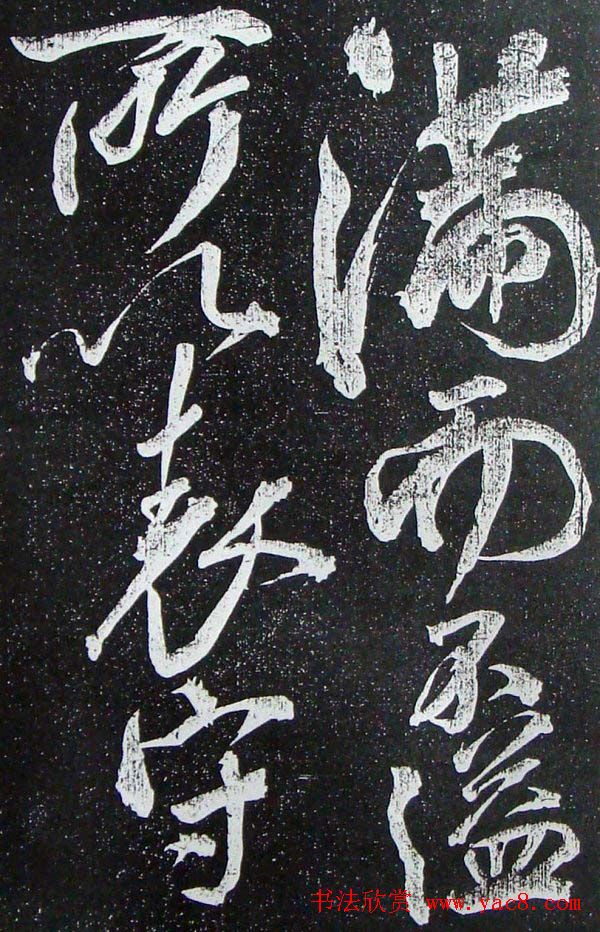 满而不溢
所以长守
书法欣赏 www.yac8.com